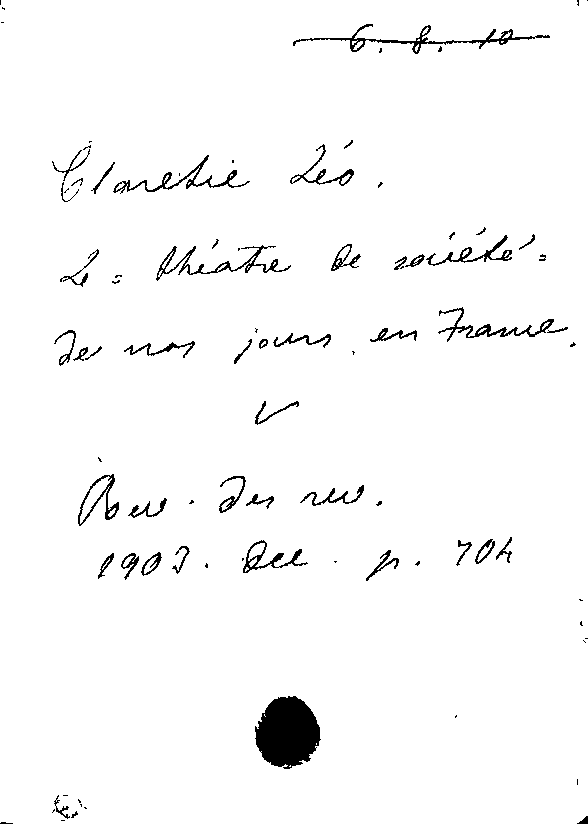 6. 8. 10
Claretie Léo.
Le = théatre de société =
de nos jours en France.
V
Rev. des rev.
1903. dec. p. 704